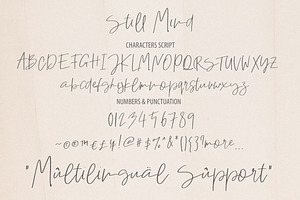 Still Mind
CHARACTERS SCRIPT
ABCDEFGHIJKLMNOPQRSTUVWXYZ
abcdefghijklmnopqrstuvwxyz
NUMBERS & PUNCTUATION
0123456789
"Multilinguäl Süpport"